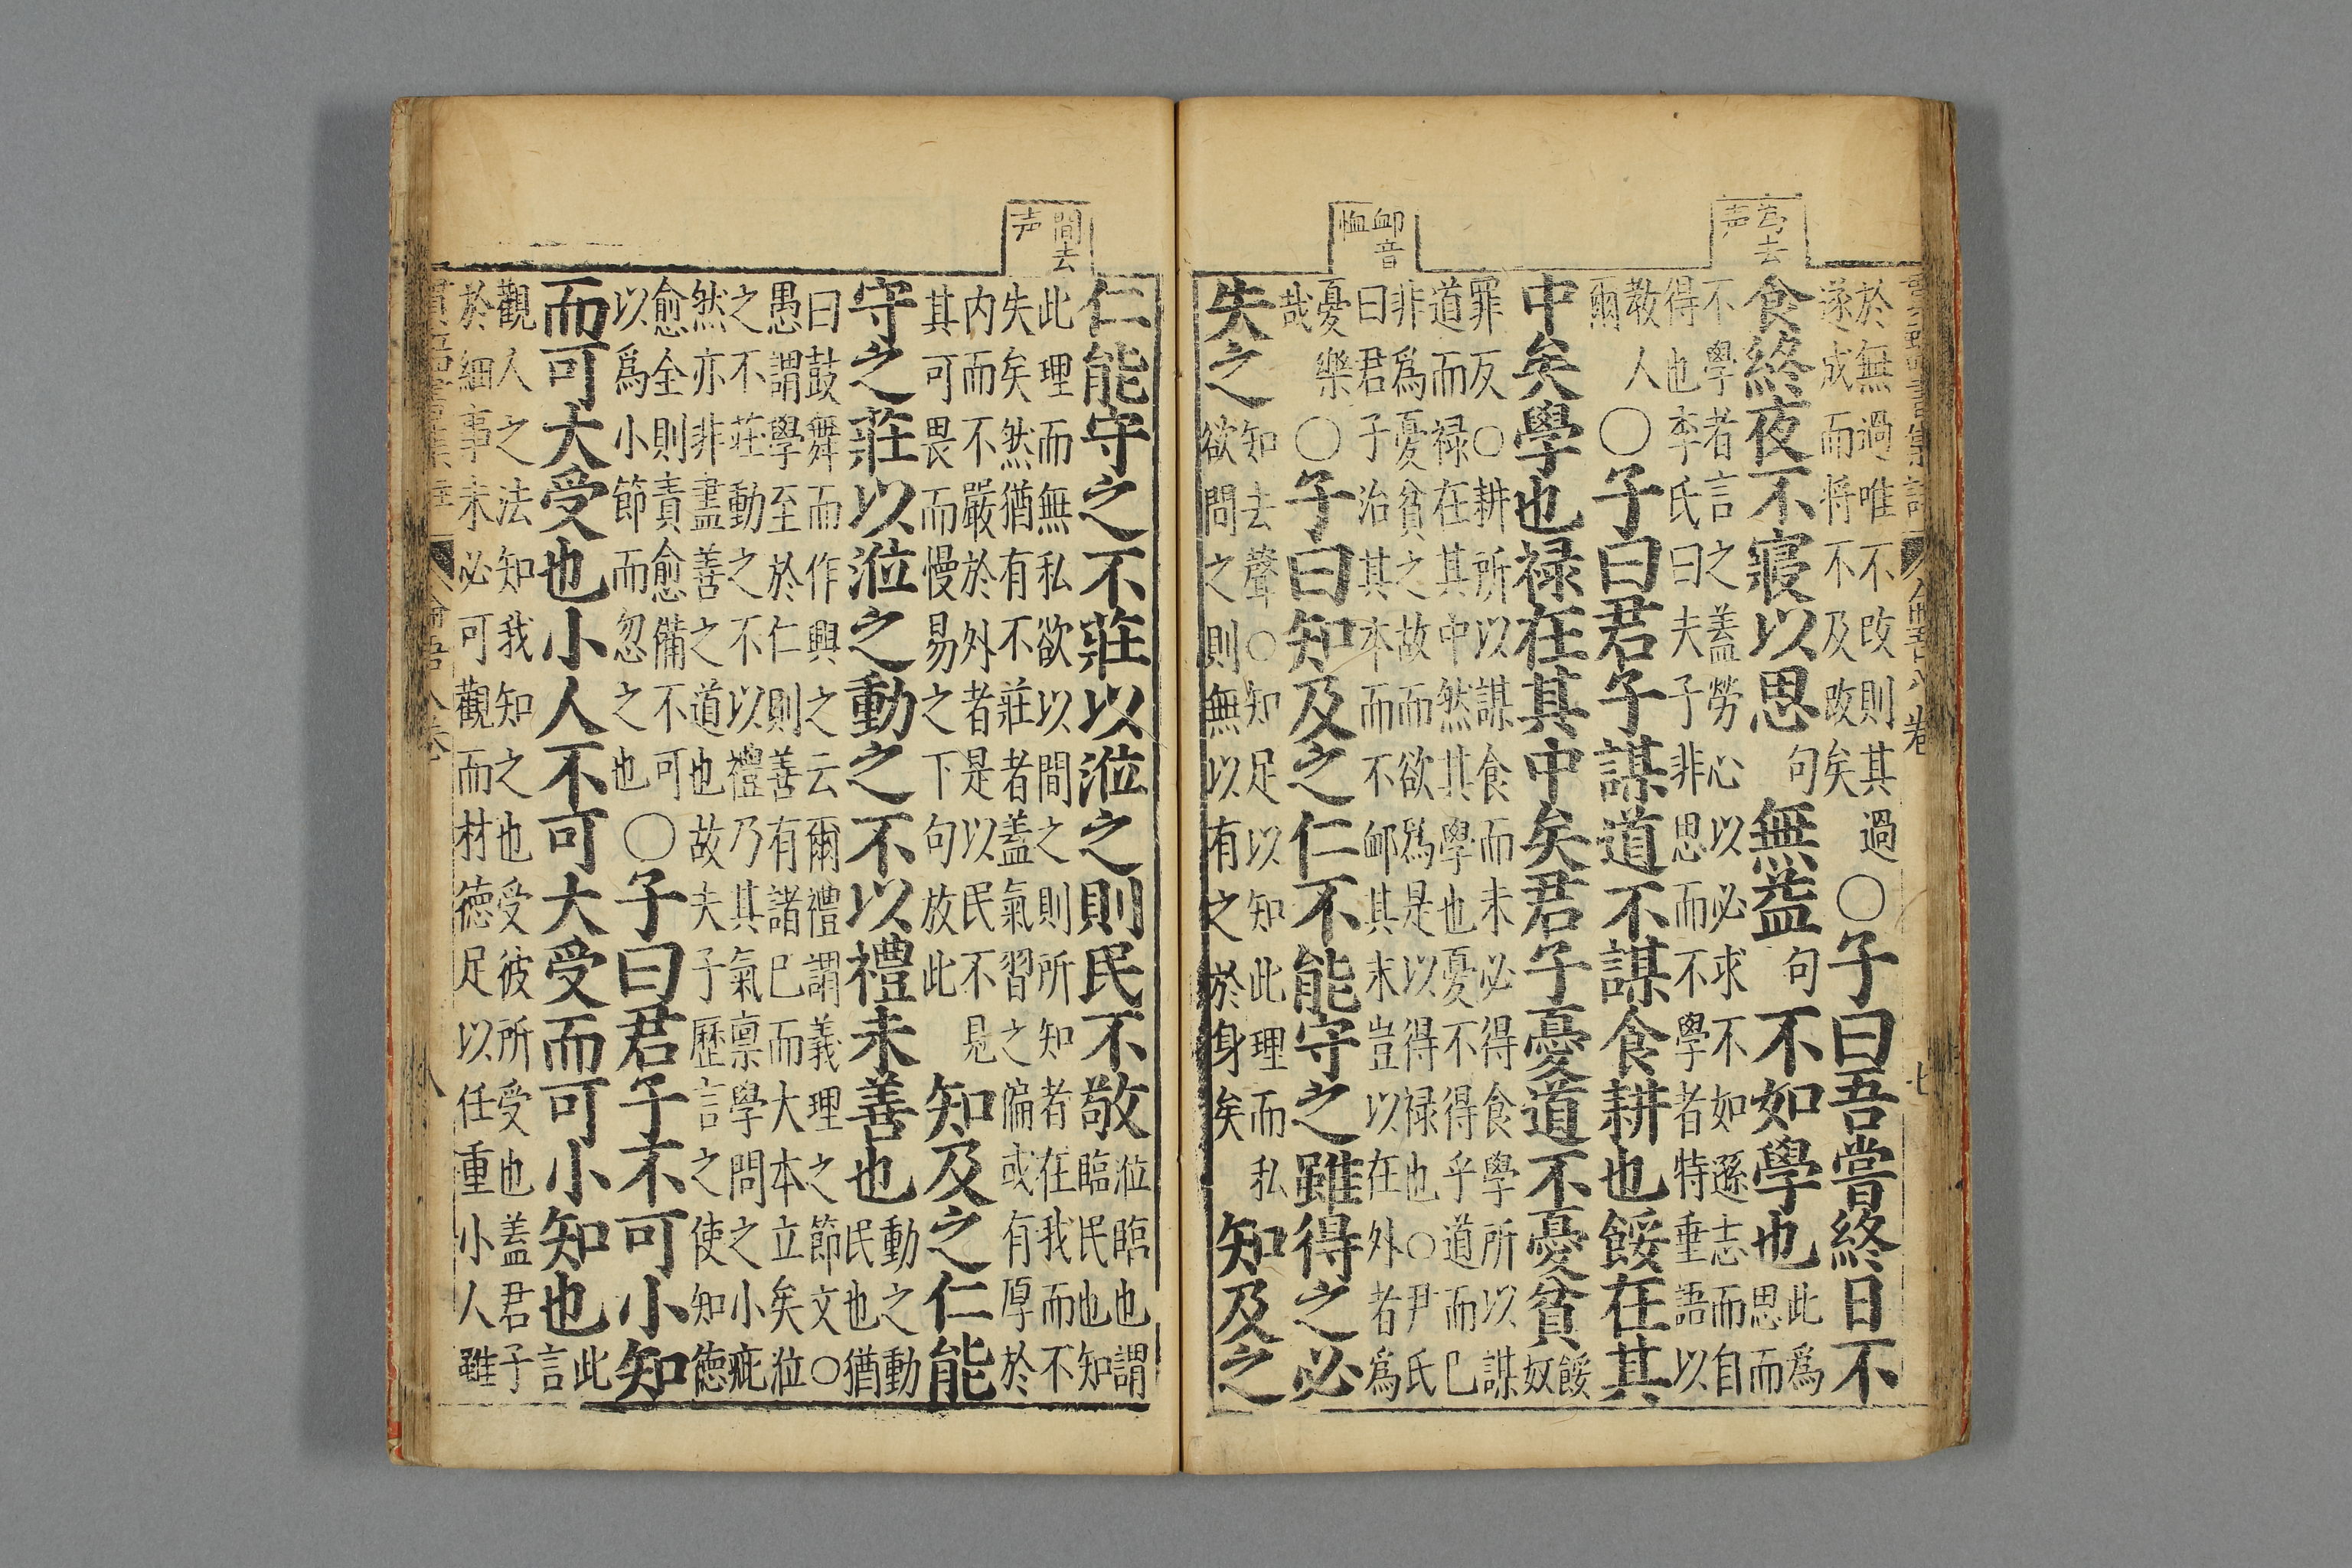 為去
声
於無過唯不改則其過
遂成而将不及改矣
○子曰吾嘗終日不
食終夜不寢以思句無益句不如學也
此爲
思而
不學者言之蓋勞心以必求不如遜志而自
得也李氏曰夫子非思而不學者特垂語以
教人
爾
○子曰君子謀道不謀食耕也餒在其
中矣學也禄在其中矣君子憂道不憂貧
餒
奴
罪反○耕所以謀食而未必得食學所以謀
道而禄在其中然其學也憂不得乎道而已
卹音
恤
非爲憂貧之故而欲爲是以得禄也○尹氏
曰君子治其本而不卹其末豈以在外者爲
憂樂
哉
○子曰知及之仁不能守之雖得之必
失之
知去聲○知足以知此理而私
欲間之則無以有之於身矣
知及之
間去
声
仁能守之不莊以涖之則民不敬
涖臨也謂
臨民也知
此理而無私欲以間之則所知者在我而不
失矣然猶有不莊者蓋氣習之偏或有厚於
内而不嚴於外者是以民不見
其可畏而慢易之下句放此
知及之仁能
守之莊以涖之動之不以禮未善也
動之動
民也猶
曰鼓舞而作興之云爾禮謂義理之節文○
愚謂學至於仁則善有諸已而大本立矣涖
之不莊動之不以禮乃其氣禀學問之小疵
然亦非盡善之道也故夫子歷言之使知德
愈全則責愈備不可
以爲小節而忽之也
○子曰君子不可小知
而可大受也小人不可大受而可小知也
此
言
觀人之法知我知之也受彼所受也蓋君子
於細事未必可觀而材德足以任重小人雖